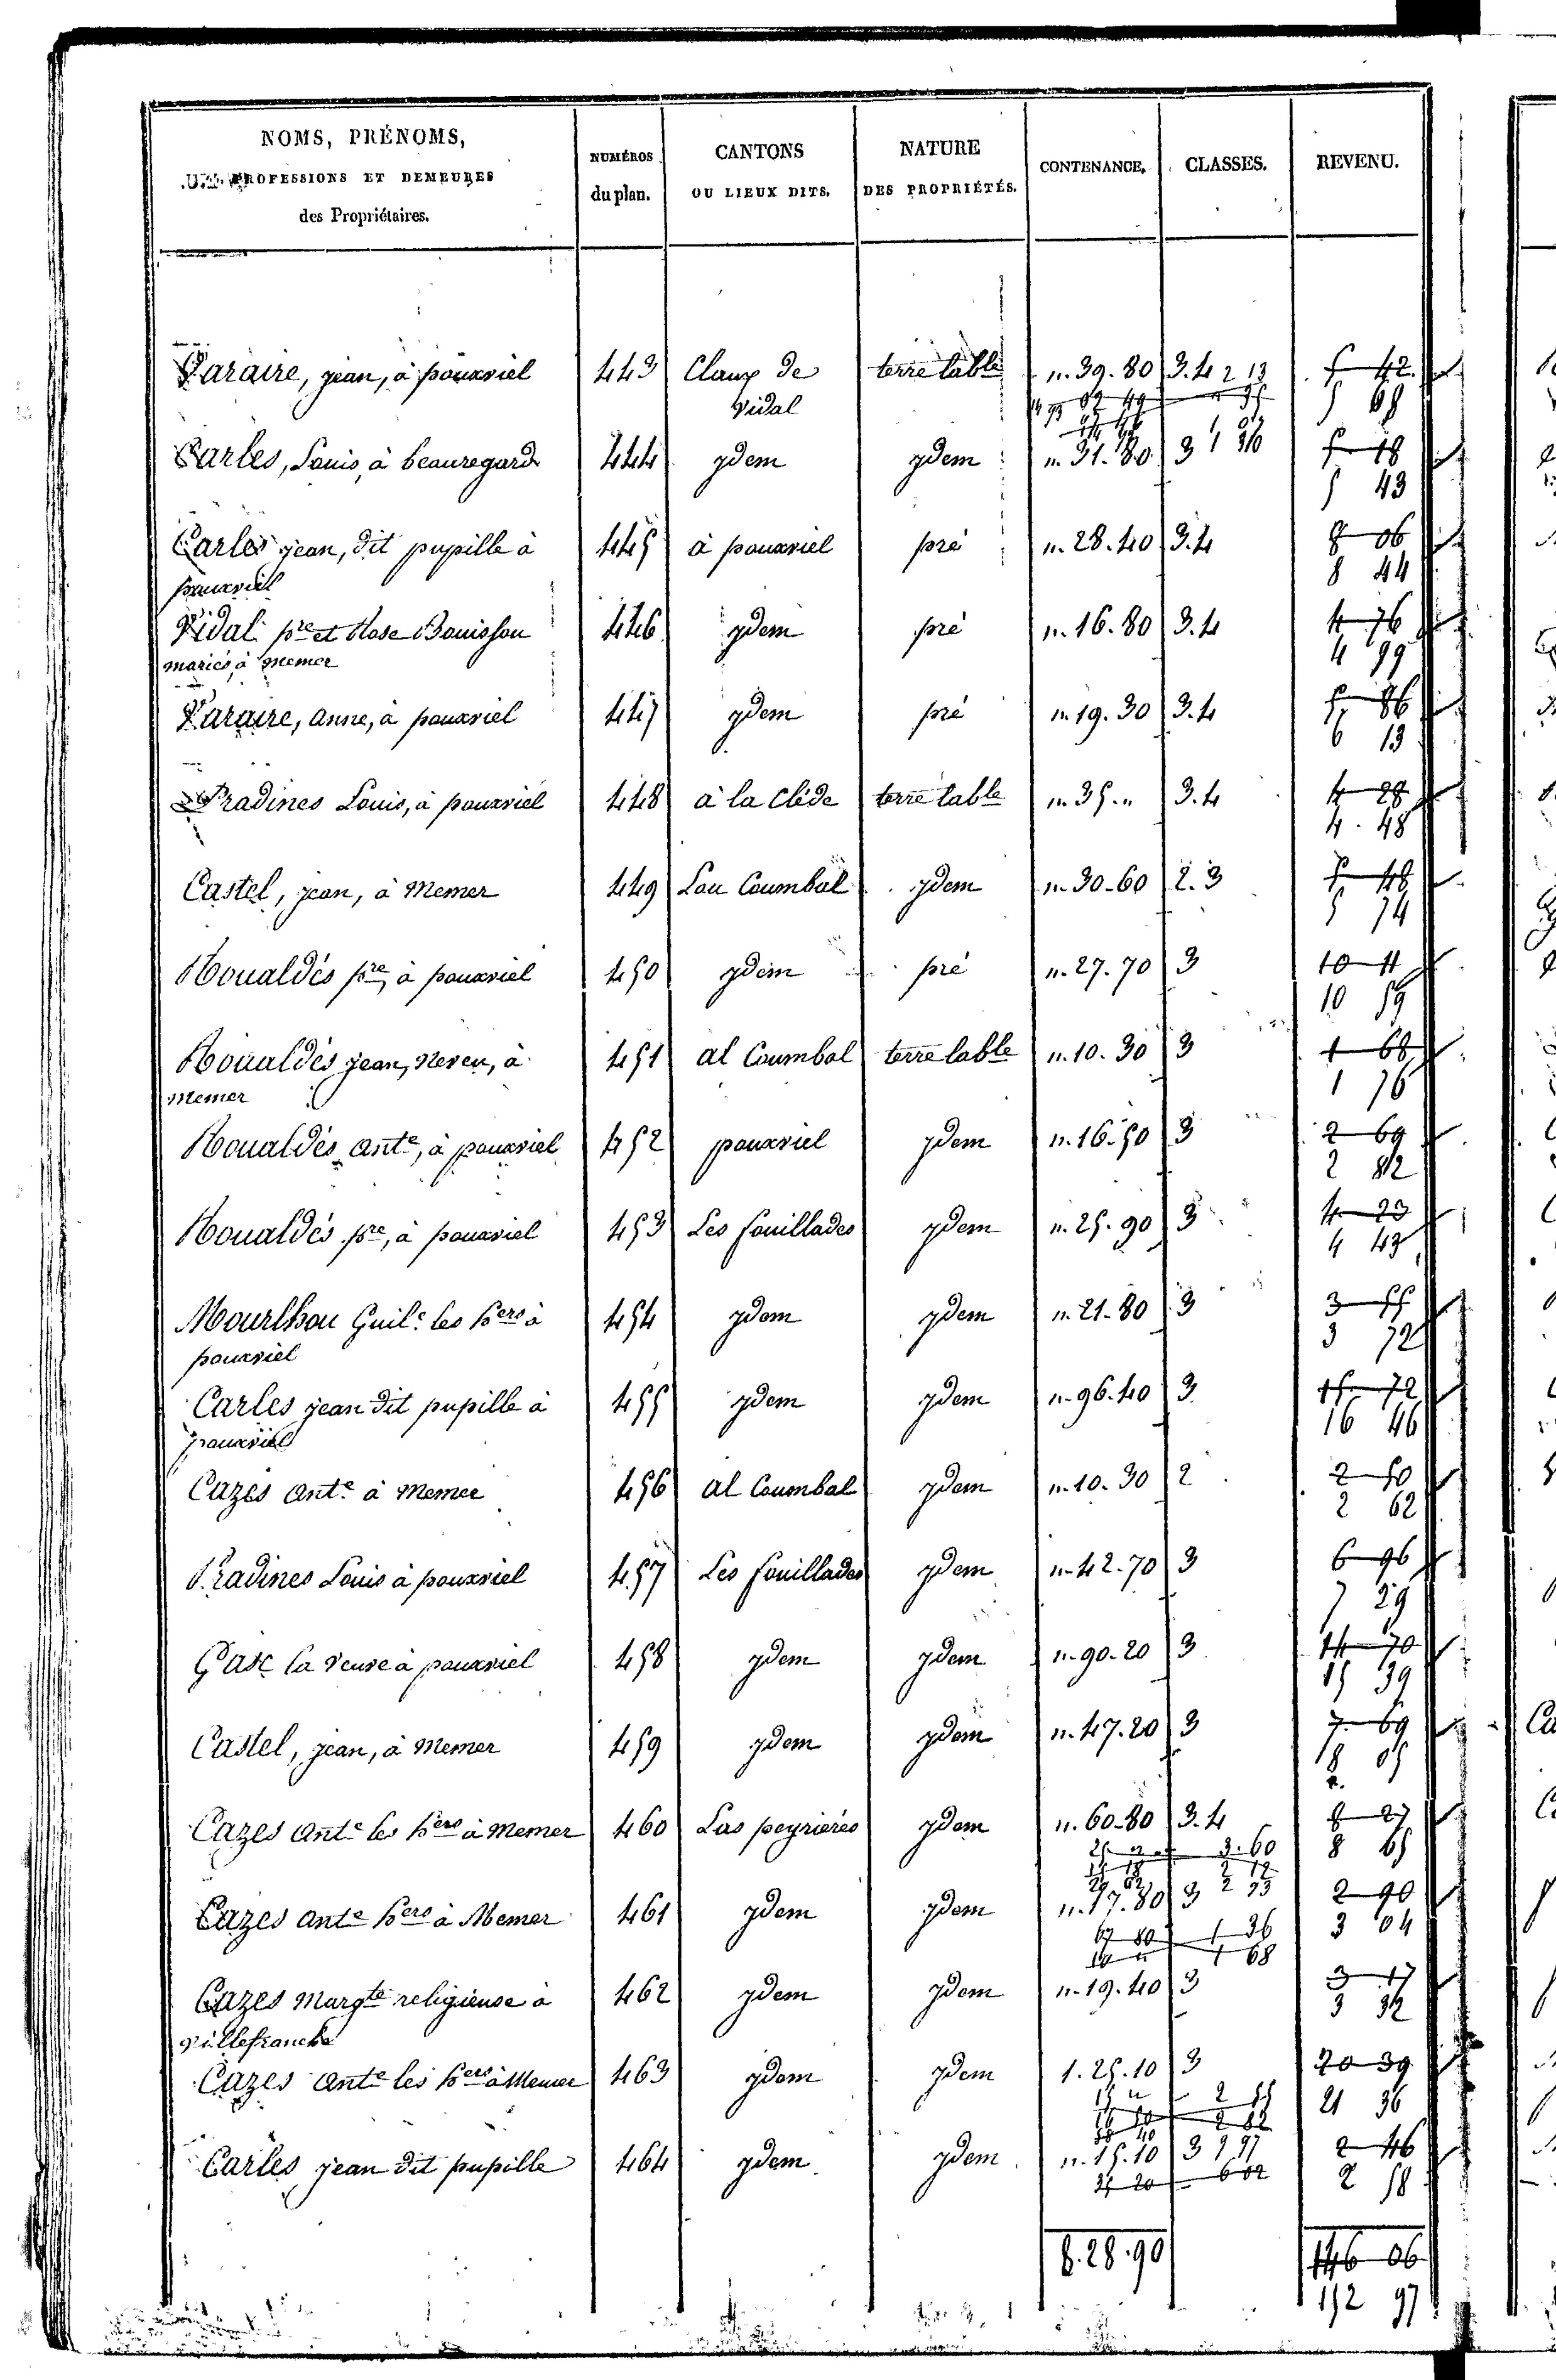 NOMS, PRÉNOMS,
PROFESSIONS ET DEMEURES
des Propriétaires.
NUMÉROS
du plan.
CANTONS
OU LIEUX DITS.
NATURE
DES PROPRIÉTÉS.
CONTENANCE.
CLASSES.
REVENU.
Varaire, jean, à pouxviel 443 Claux de terre labble ". 39. 80 3.4 2 13 5 42
Vidal 5 68
Carles, Louis, à beauregard 444 ydem ydem ". 31. 80 3 5 18
5 43
Carles jean, dit pupille à 445 à pouxviel pré ". 28. 40 3.4 8 06
pouxviel 8 44
Vidal pre et Rose Bouisson 446 ydem pré ". 16. 80 3.4 4 76
mariés, à Memer 4 99
Varaire, anne, à pouxviel 447 ydem pré ". 19. 30 3.4 5 86
6 13
Pradines Louis, à pouxviel 448 à la Clède terre labble ". 35. " 3.4 4 28
4 48
Castel, jean, à Memer 449 Lou Coumbal ydem ". 30. 60 2.3 5 48
5 74
Roualdés pre, à pouxviel 450 ydem pré ". 27. 70 3 10 11
10 59
Roualdés jean, neveu, à 451 al Coumbal terre labble ". 10. 30 3 1 68
Memer 1 76
Roualdés ante, à pouxviel 452 pouxviel ydem ". 16. 50 3 2 69
2 82
Roualdés pre, à pouxviel 453 Les fouillades ydem ". 25. 90 3 4 23
4 43
Mourlhou Guile les hers à 454 ydem ydem ". 21. 80 3 3 55
pouxviel 3 72
Carles jean dit pupille à 455 ydem ydem ". 96. 40 3 15 72
pouxviel 16 46
Cazes ante à Memer 456 al Coumbal ydem ". 10. 30 2 2 50
2 62
Pradines Louis à pouxviel 457 Les fouillades ydem ". 42. 70 3 6 96
7 29
Gasc la veuve à pouxviel 458 ydem ydem ". 90. 20 3 14 70
15 39
Castel, jean, à Memer 459 ydem ydem ". 47. 20 3 7 69
8 05
Cazes ante les hers à Memer 460 Las peyriéres ydem ". 60. 80 3.4 8 27
3. 60 8 65
2 12
Cazes ante hers à Memer 461 ydem ydem ". 17. 80 3 2 93 2 90
67 80 1 36 3 04
1 68
Cazes margte religieuse à 462 ydem ydem ". 19. 40 3 3 17
villefranche 3 32
Cazes ante les hers à Memer 463 ydem ydem 1. 25. 10 3 20 39
15 " 2 55 21 36
2 82
Carles jean dit pupille 464 ydem ydem ". 15. 10 3 2 46
35 20 6 02 2 58
8. 28. 90 146 06
152 97